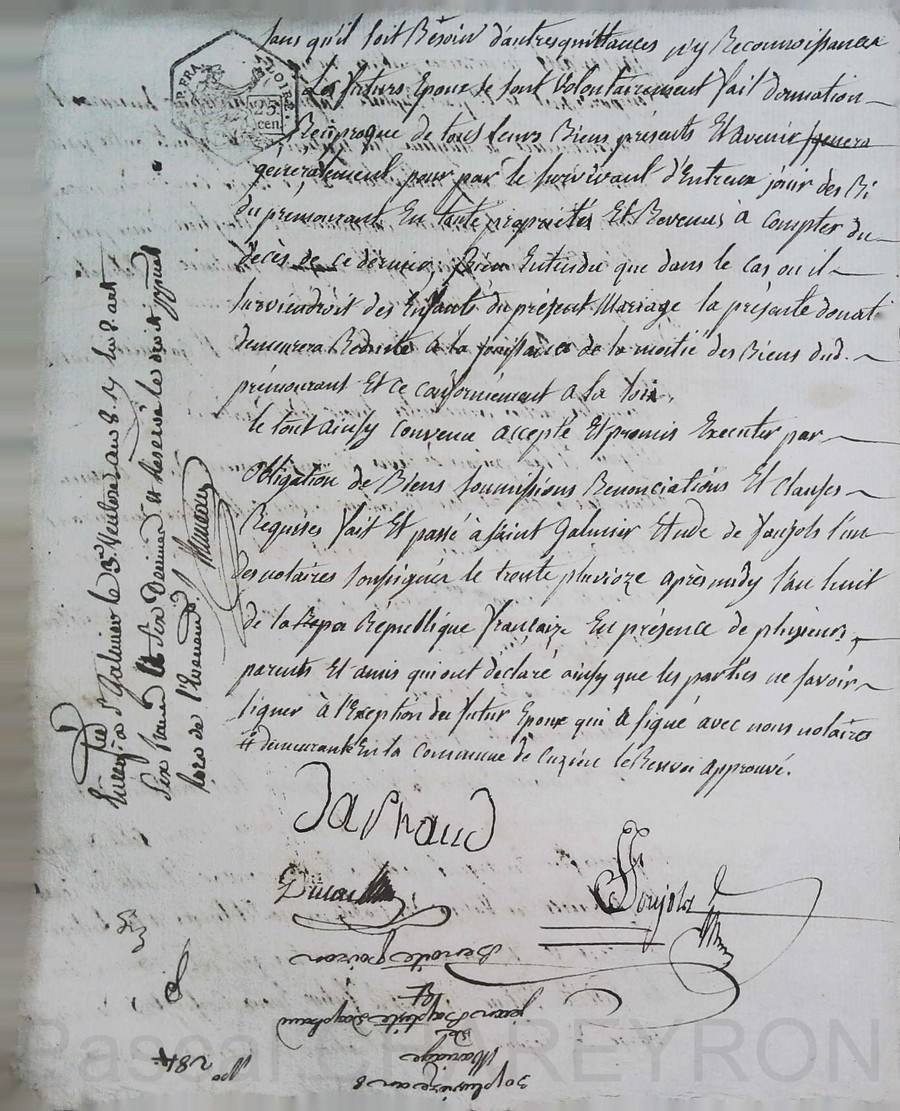 sans qu'il soit Besoin d'autres quittances n'y Reconnoissances
Les futurs Epoux se sont Volontairement fait donnation
Reciproque de tous leurs Biens présents Et avenir genera
généralement pour par le survivant d'Entreux jouir des Bi
du prémourant En toute propriétés Et Revenus à compter du
décès de ce dernier; Bien Entendu que dans le cas ou il
surviendroit des Enfants du présent Mariage la présente donat
demeurera Reduite à la jouissance de la moitié des Biens dud.
prémourant Et ce conformément a la loix,
le tout ainsy convenu accepté Et promis Executer par
obligation de Biens soumissions Renonciations Et clauses
Requises fait Et passé à saint Galmier Etude de Soujols l'un
des notaires soussignés le trente pluvioze après midy l'an huit
de la Repu République française En présence de plusieurs
parents Et amis qui ont déclaré ainsy que les parties ne savoir
signer à l'Exception du futur Epoux qui a signé avec nous notaires
# demeurante En la Commune de Cuzieu le Renvoi approuvé.
Japhaud
Soujols
à St Galmier le 3 Ventose an 8.
six francs
REP. FRA.
LOIRE.
25.
cen.
30 pluvioze an 8
Mariage
de
jean Baptiste Japhaud
Et
Benoite poizon
No 284
Pascal CHAREYRON